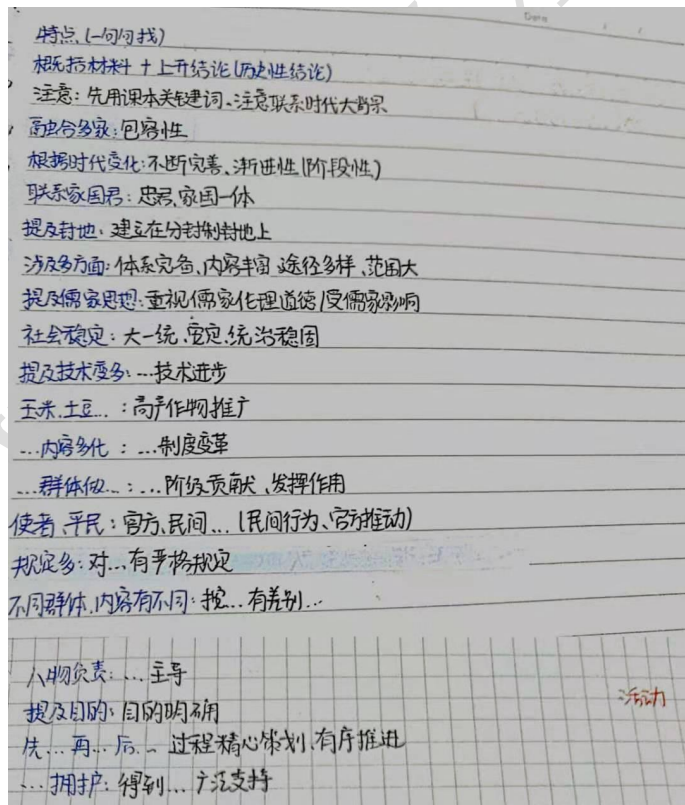 Date
特点(一句句找)
概括材料 + 上升结论(历史性结论)
注意:先用课本关键词、注意联系时代大背景
融合多家:包容性
根据时代变化:不断完善、渐进性(阶段性)
联系家国君:忠君、家国一体
提及封地:建立在分封制封地上
涉及多方面:体系完备、内容丰富、途径多样、范围大
提及儒家思想:重视儒家伦理道德/受儒家影响
社会稳定:大一统、安定、统治稳固
提及技术变多:…技术进步
玉米、土豆…:高产作物推广
…内容多化:…制度变革
…群体做…:…阶级贡献、发挥作用
使者、平民:官方、民间…(民间行为、官方推动)
规定多:对…有严格规定
不同群体,内容有不同:按…有差别…
人物负责:…主导
活动
提及目的:目的明确
先…再…后… 过程精心策划、有序推进
…拥护:得到…广泛支持